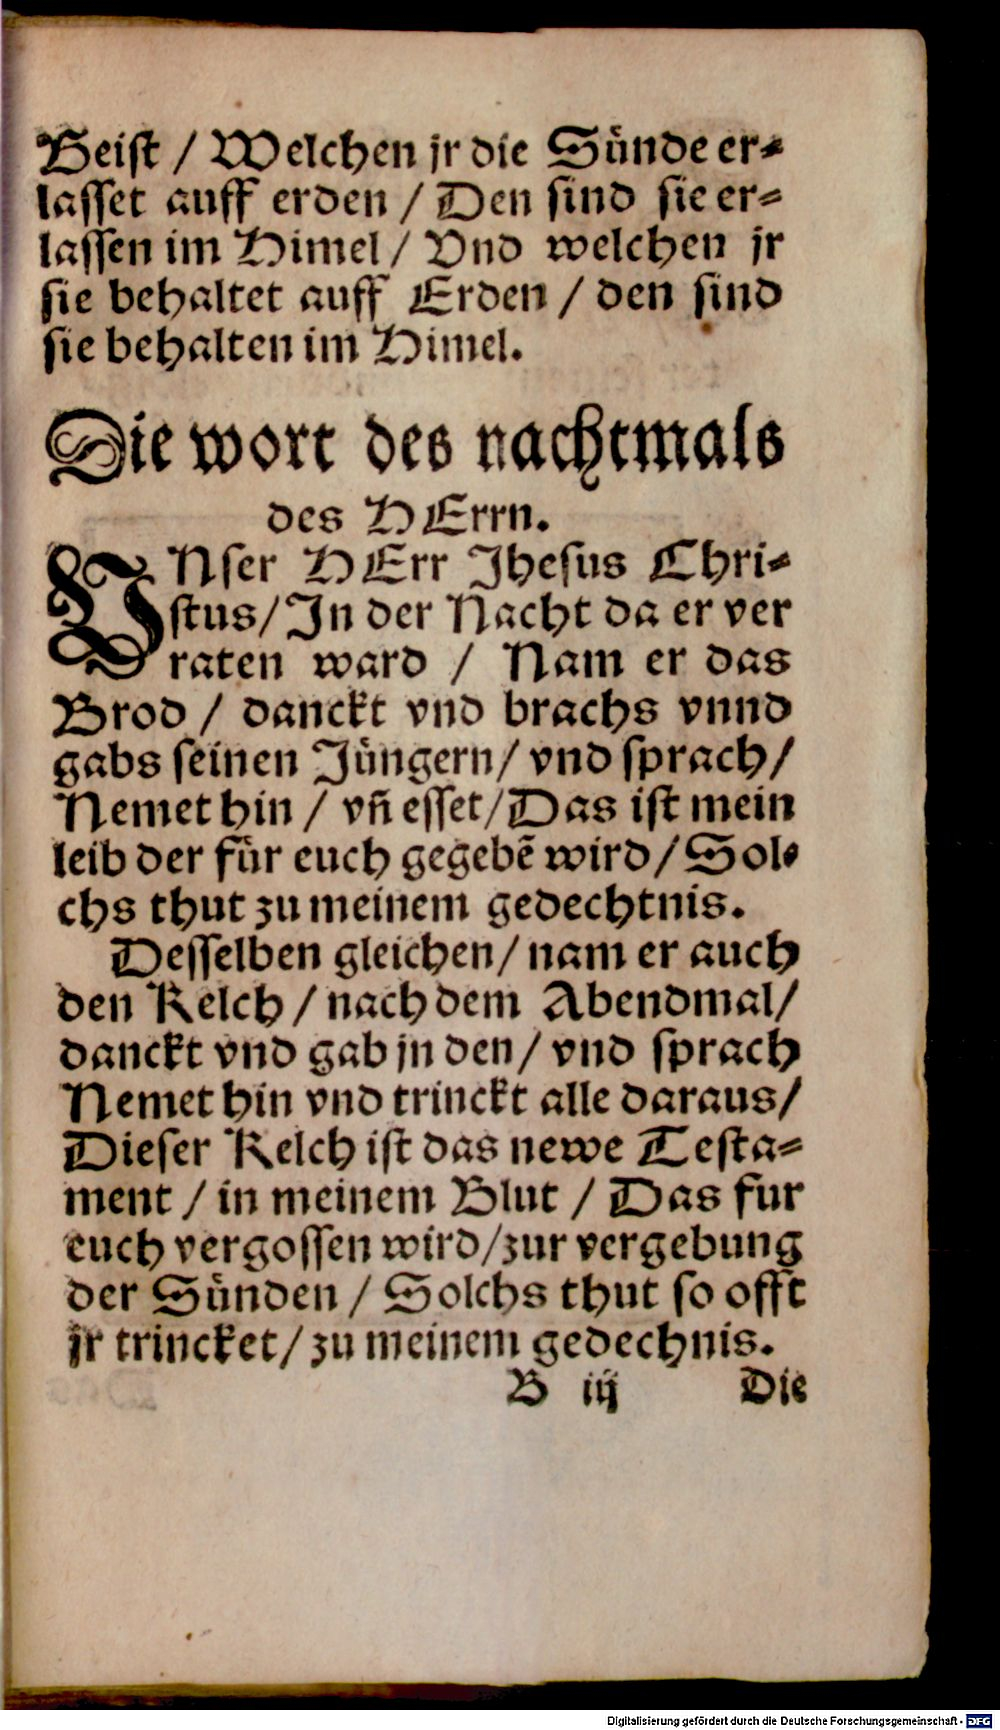 Geist / Welchen jr die Sünde er-
lasset auff erden / Den sind sie er-
lassen im Himel / Vnd welchen jr
sie behaltet auff Erden / den sind
sie behalten im Himel.
Die wort des nachtmals
des HErrn.
VNser HErr Jhesus Chri-
stus / Jn der Nacht da er ver
raten ward / Nam er das
Brod / danckt vnd brachs vnnd
gabs seinen Jüngern / vnd sprach /
Nemet hin / vñ esset / Das ist mein
leib der für euch gegebẽ wird / Sol-
chs thut zu meinem gedechtnis.
Desselben gleichen / nam er auch
den Kelch / nach dem Abendmal /
danckt vnd gab jn den / vnd sprach
Nemet hin vnd trinckt alle daraus /
Dieser Kelch ist das newe Testa-
ment / in meinem Blut / Das fur
euch vergossen wird / zur vergebung
der Sünden / Solchs thut so offt
jr trincket / zu meinem gedechnis.
B iij Die
Digitalisierung gefördert durch die Deutsche Forschungsgemeinschaft - DFG